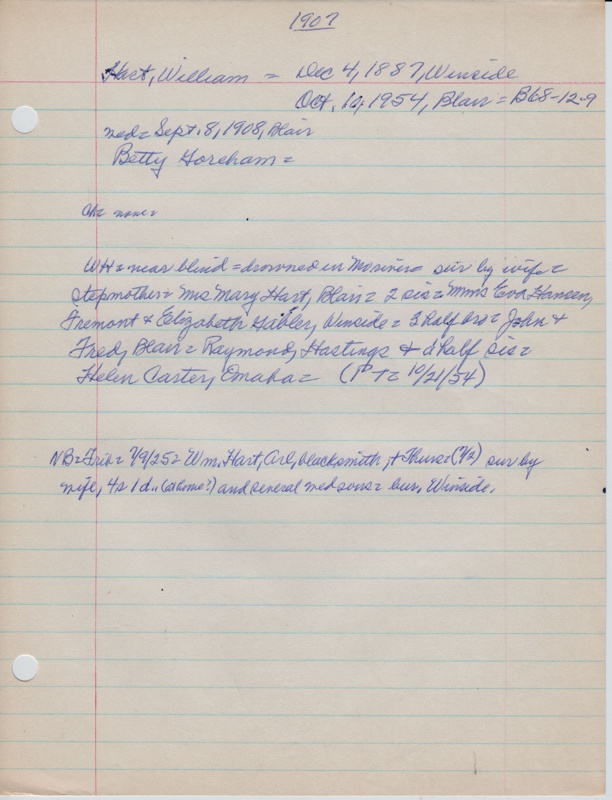 1907
Hart, William = Dec 4, 1887, Winside
Oct. 10, 1954, Blair = B68-12-9
med = Sept. 8, 1908, Blair
Betty Goreham =
Ch = none =
WH = near blind = drowned in Mo river = sur by wife =
stepmother = Mrs Mary Hart, Blair = 2 sis = Mmes Eva Hansen,
Fremont & Elizabeth Gabler, Winside = 3 half bro = John &
Fred, Blair = Raymond, Hastings & d half sis =
Helen Carter, Omaha = (PT = 10/21/54)
NB = Trib = 7/9/25 = Wm. Hart, Arl, blacksmith, + Thurs = (7/2) sur by
wife, 4s 1d.. (at home?) and several med sons = bur, Winside.